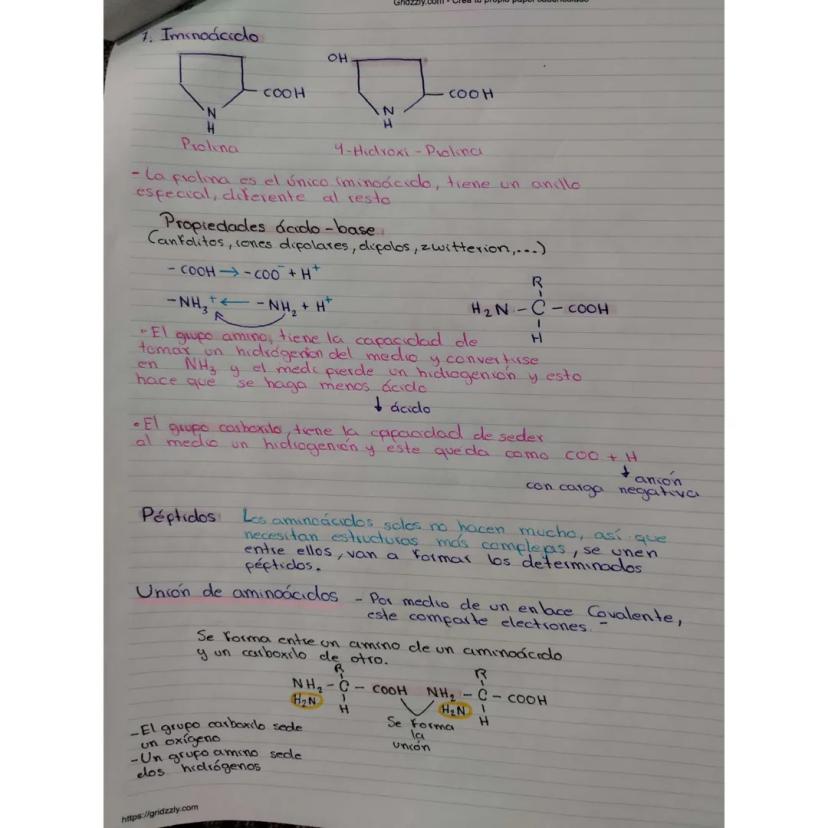 1. Iminoácido
COOH
N
H
Prolina
OH
COOH
N
H
4-Hidroxi-Prolina
- La prolina es el único iminoácido, tiene un anillo
especial, diferente al resto
Propiedades ácido-base
(anfolitos, iones dipolares, dipolos, zwitterion,...)
- COOH → - COO⁻ + H⁺
- NH₃⁺ ← - NH₂ + H⁺
R
H₂N - C - COOH
H
• El grupo amino, tiene la capacidad de
tomar un hidrógenion del medio y convertirse
en NH₃ y el medi pierde un hidrogenión y esto
hace que se haga menos ácido
↓ ácido
• El grupo carboxilo, tiene la capacidad de seder
al medio un hidrogenión y este queda como COO + H
↓ anión
con carga negativa
Péptidos: Los aminoácidos solos no hacen mucho, así que
necesitan estructuras más complejas, se unen
entre ellos, van a formar los determinados
péptidos.
Unión de aminoácidos - Por medio de un enlace Covalente,
este comparte electrones. -
Se forma entre un amino de un aminoácido
y un carboxilo de otro.
R R
NH₂ - C - COOH NH₂ - C - COOH
H₂N H H₂N H
Se forma
la
unión
- El grupo carboxilo sede
un oxígeno
- Un grupo amino sede
dos hidrógenos
https://gridzzly.com